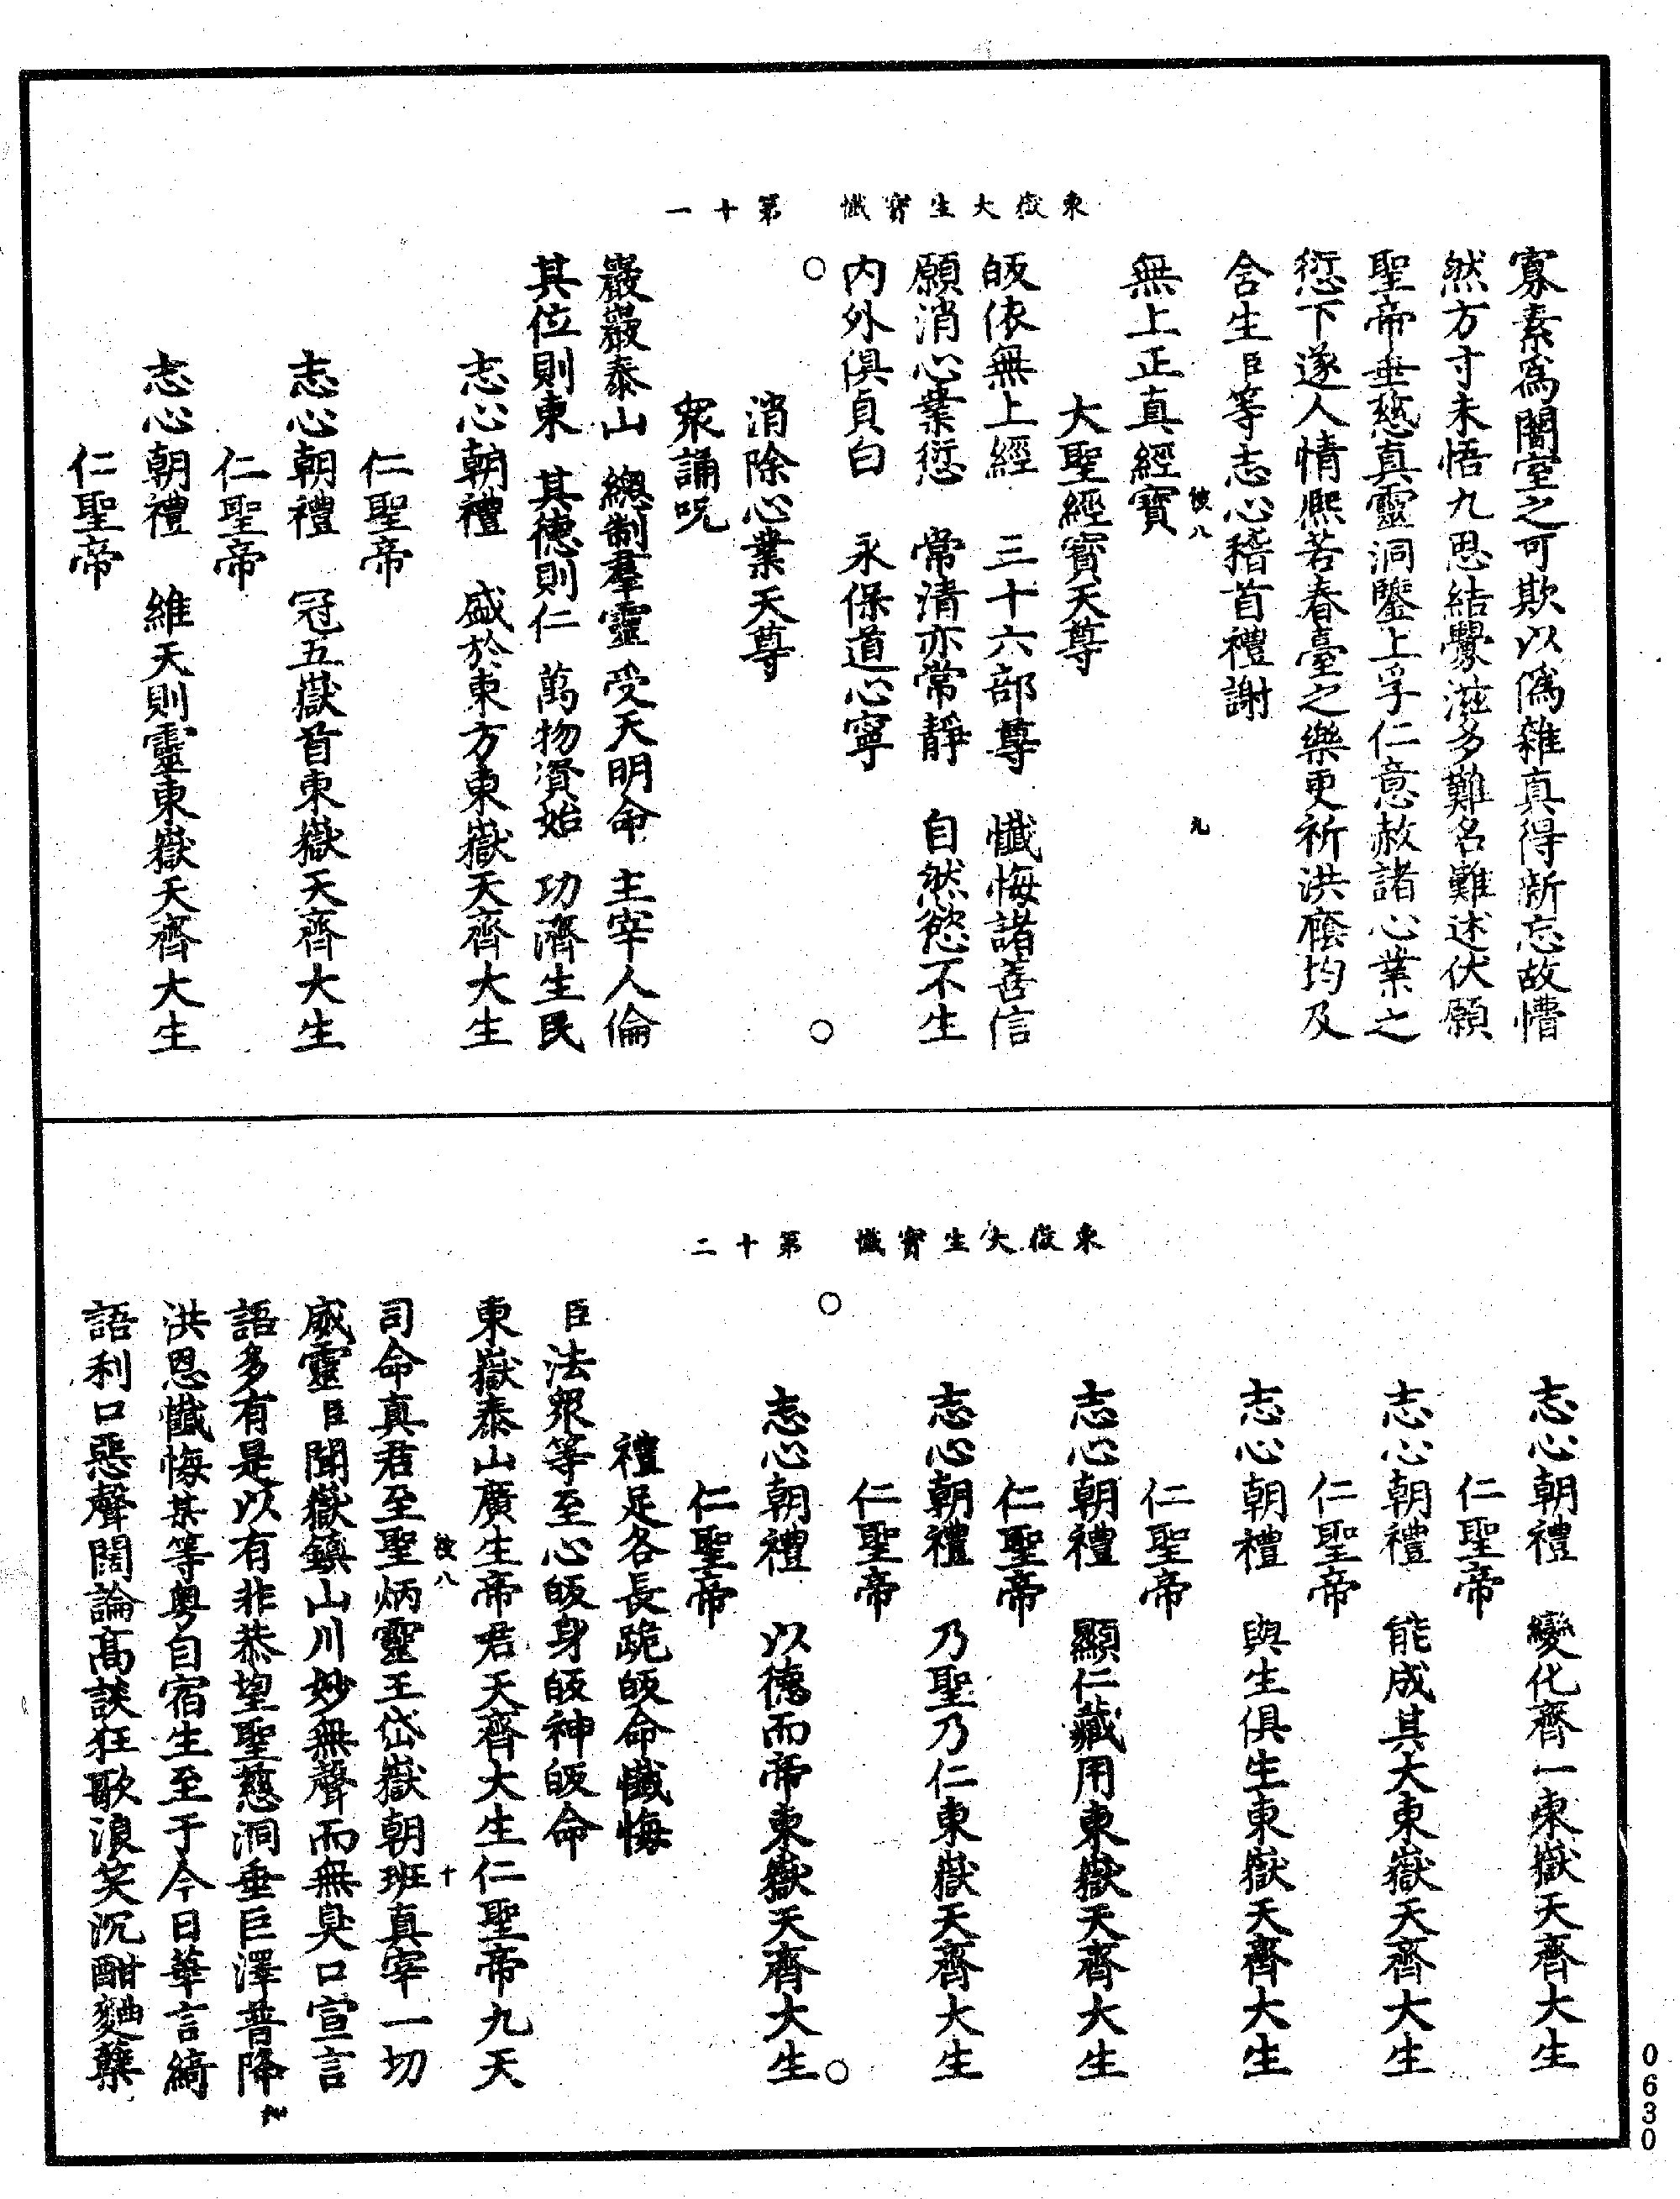 東嶽大生寶懺　第十一
寡素爲闇室之可欺以僞雜真得新忘故懵
然方寸未悟九思結釁滋多難名難述伏願
聖帝垂慈真靈洞鑒上孚仁意赦諸心業之
愆下遂人情熙若春臺之樂更祈洪廕均及
含生臣等志心稽首禮謝
八　九
無上正真經寶
大聖經寶天尊
皈依無上經　三十六部尊　懺悔諸善信
願消心業愆　常清亦常靜　自然慾不生
内外俱貞白　永保道心寧
○　○
消除心業天尊
衆誦呪
巖巖泰山　總制羣靈　受天明命　主宰人倫
其位則東　其德則仁　萬物資始　功濟生民
志心朝禮　盛於東方東嶽天齊大生
仁聖帝
志心朝禮　冠五嶽首東嶽天齊大生
仁聖帝
志心朝禮　維天則靈東嶽天齊大生
仁聖帝
東嶽大生寶懺　第十二
志心朝禮　變化齊一東嶽天齊大生
仁聖帝
志心朝禮　能成其大東嶽天齊大生
仁聖帝
志心朝禮　與生俱生東嶽天齊大生
仁聖帝
志心朝禮　顯仁藏用東嶽天齊大生
仁聖帝
志心朝禮　乃聖乃仁東嶽天齊大生
仁聖帝
○　○
志心朝禮　以德而帝東嶽天齊大生
仁聖帝
禮足各長跪皈命懺悔
臣法衆等至心皈身皈神皈命
東嶽泰山廣生帝君天齊大生仁聖帝九天
八　十
司命真君至聖炳靈王岱嶽朝班真宰一切
威靈臣聞嶽鎮山川妙無聲而無臭口宣言
語多有是以有非恭望聖慈洞垂巨澤普降
洪恩懺悔某等粤自宿生至于今日華言綺
語利口惡聲闊論高談狂歌浪笑沉酣麴糵
0630